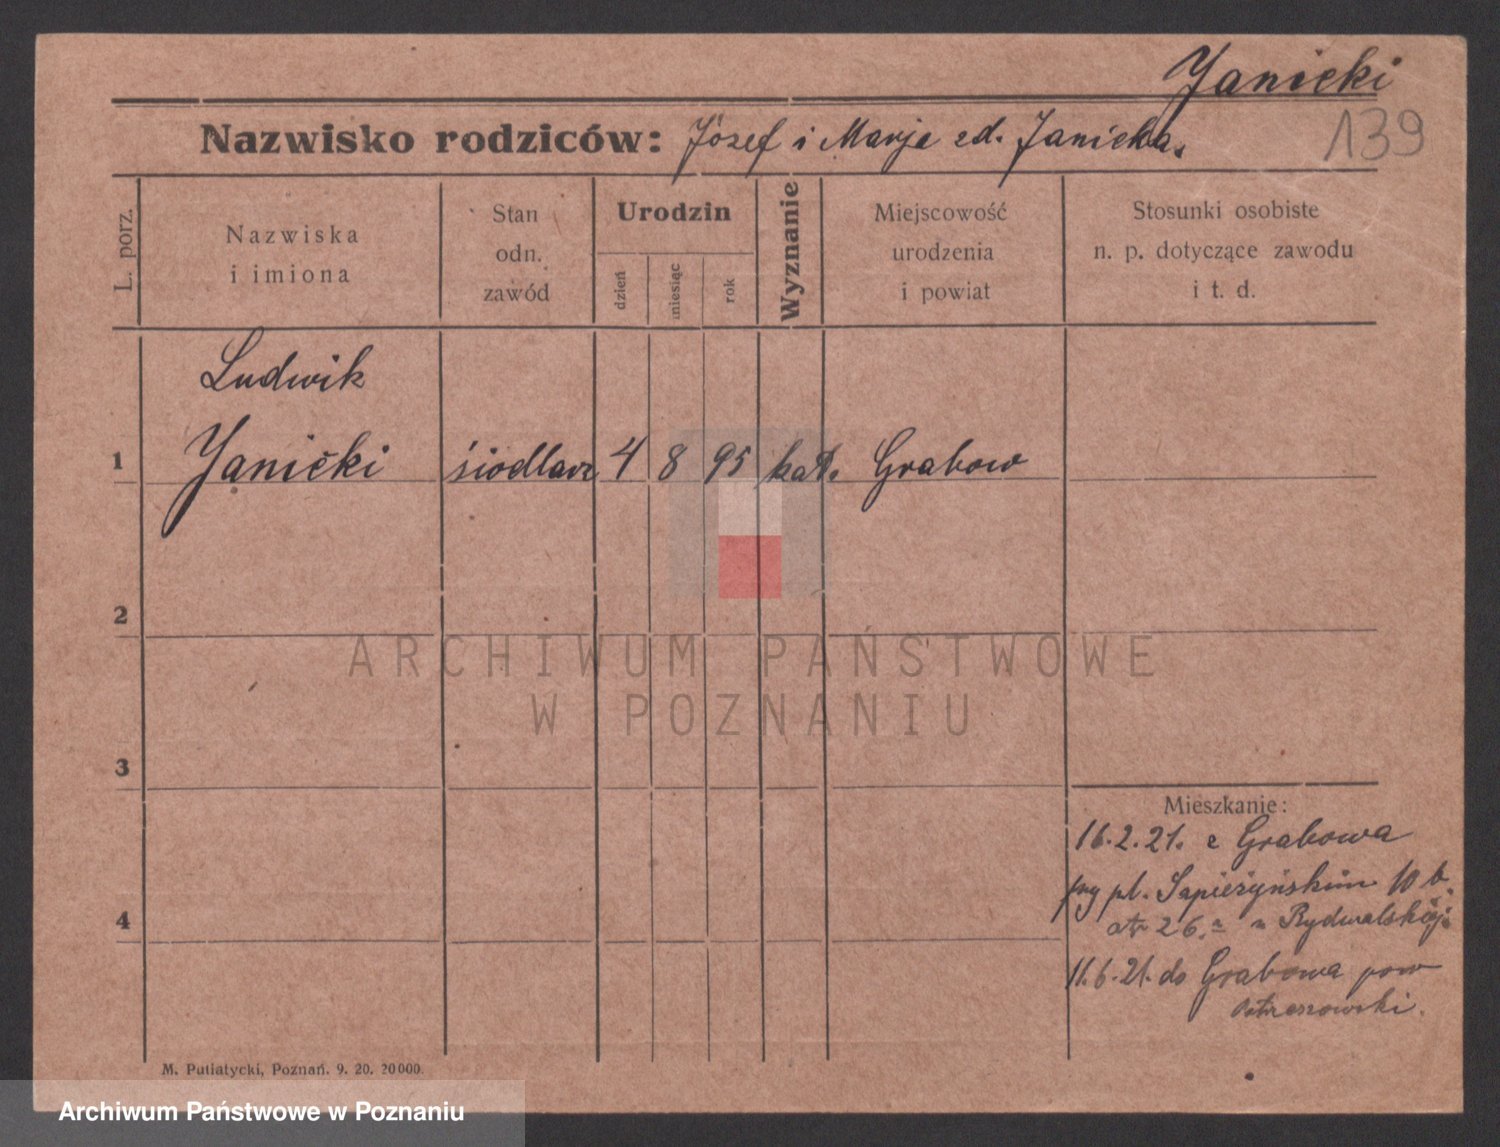 Janicki
Nazwisko rodziców: Józef i Marja zd. Janicka.
139
L. porz.
Nazwiska
i imiona
Stan
odn.
zawód
Urodzin
dzień
miesiąc
rok
Wyznanie
Miejscowość
urodzenia
i powiat
Stosunki osobiste
n. p. dotyczące zawodu
i t. d.
Ludwik
1 Janicki siodlarz 4 8 95 kat. Grabow
2
ARCHIWUM PAŃSTWOWE
W POZNANIU
3
Mieszkanie:
16.2.21. z Grabowa
przy pl. Sapieżyńskim 10 b.
4
26. u Rydwalskiej
11.6.21. do Grabowa pow
Ostrzeszowski.
M. Putiatycki, Poznań. 9. 20. 20000.
Archiwum Państwowe w Poznaniu